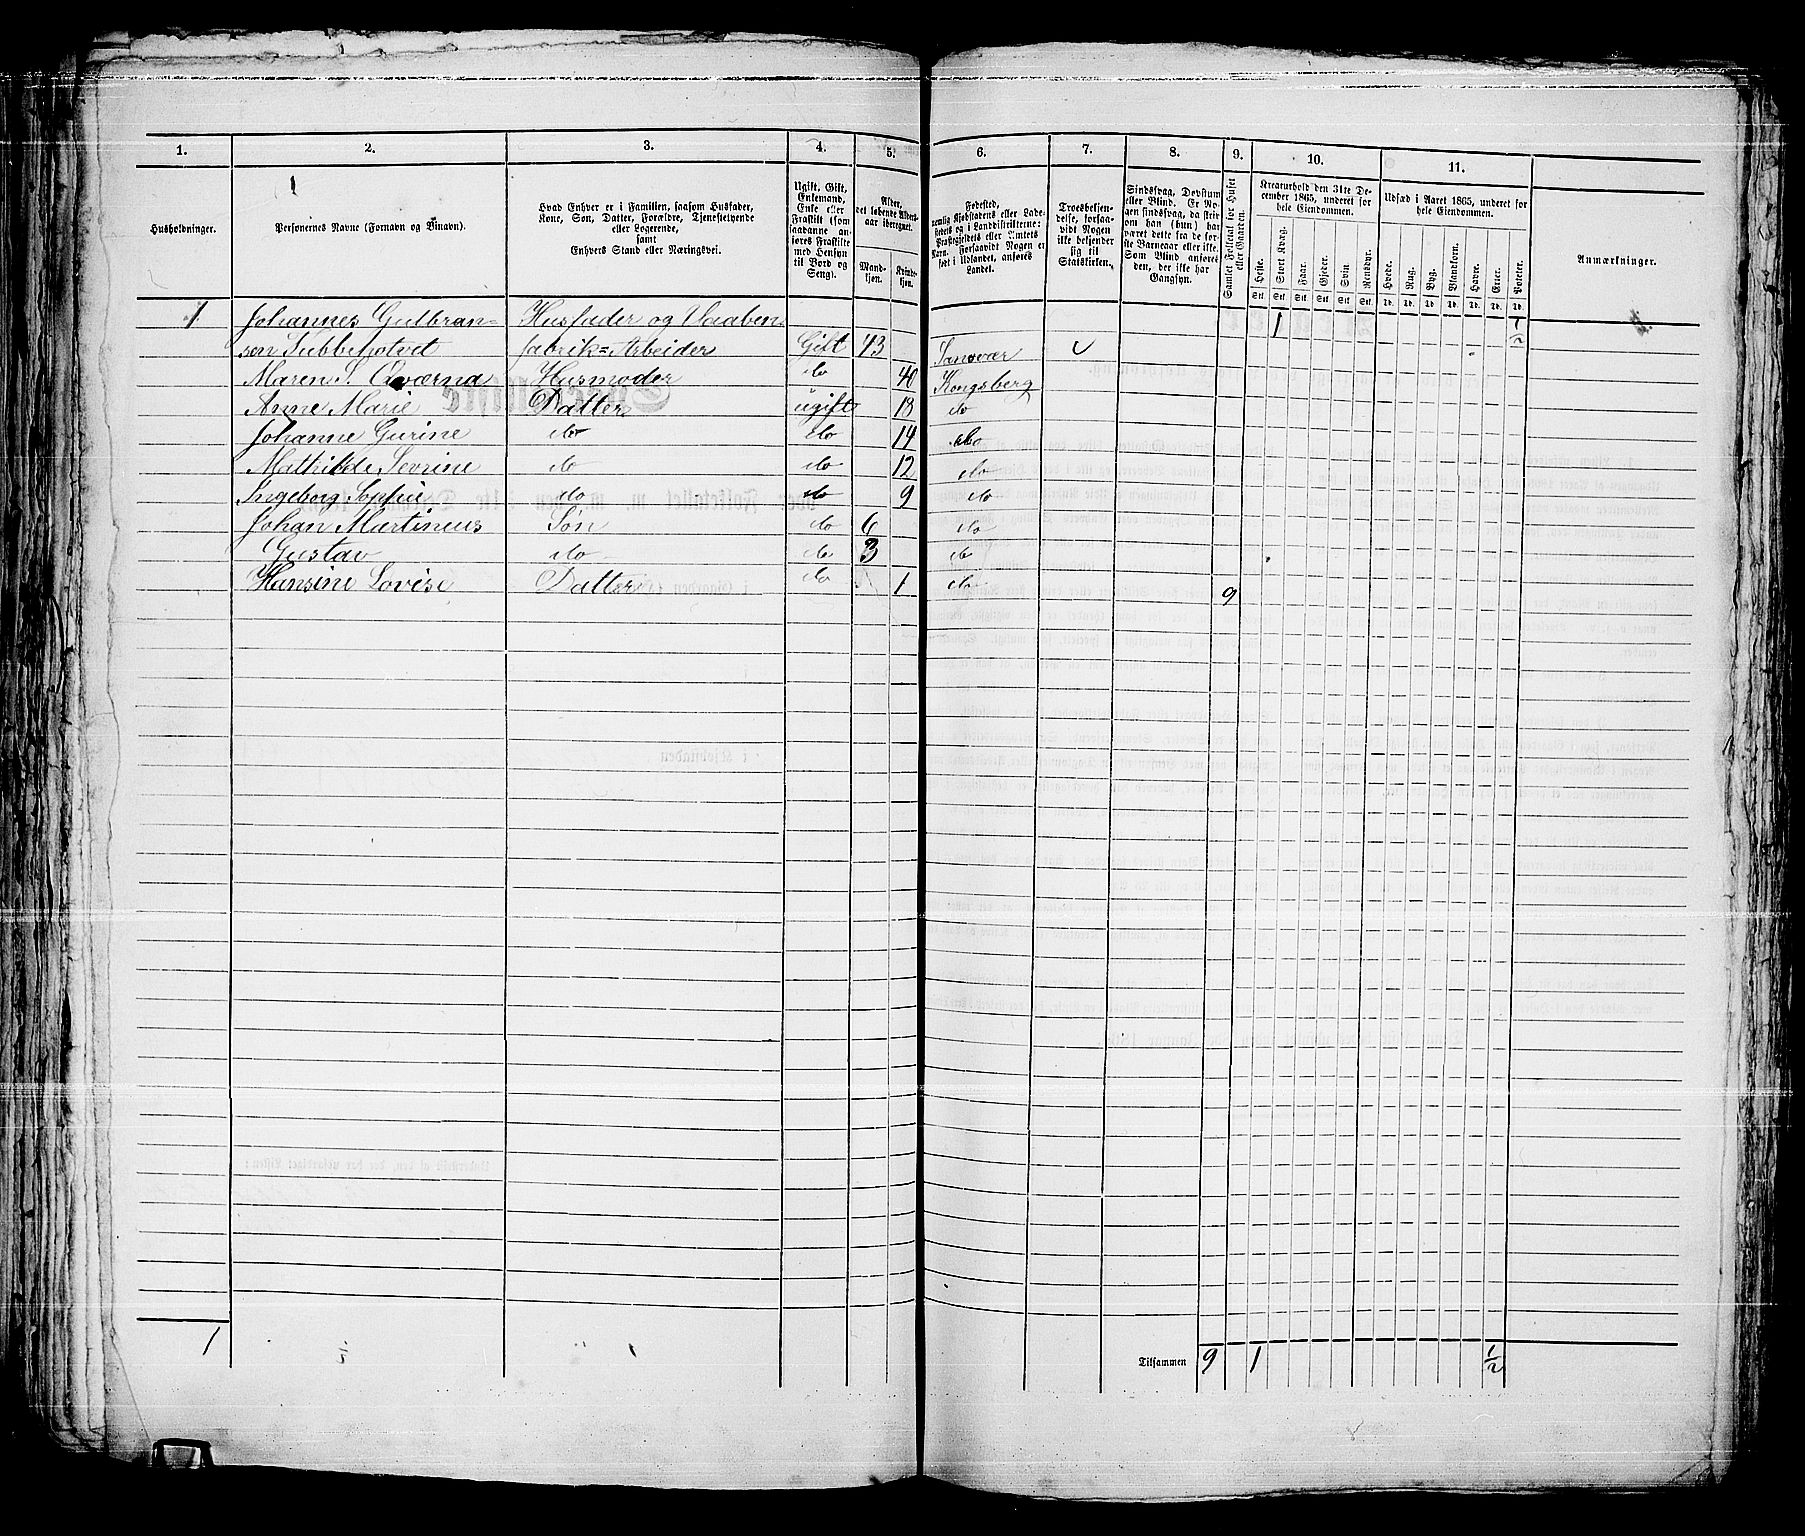 1. 2. 3. 4. 5. 6. 7. 8. 9. 10. 11.
Husholdninger.
Personernes Navne (Fornavn og Binavn).
Hvad Enhver er i Familien, saasom Husfader,
Kone, Søn, Datter, Forældre, Tjenestetyende
eller Logerende,
samt
Enhvers Stand eller Næringsvei.
Ugift, Gift,
Enkemand,
Enke eller
Fraskilt (som
saadanne an-
føres Fraskilte
med Hensyn
til Bord og
Seng).
Alder,
det løbende Alders-
aar iberegnet.
Mand-
kjøn.
Kvinde-
kjøn.
Fødested,
nemlig Kjøbstadens eller Lade-
stedets og i Landdistrikterne:
Præstegjeldets eller Amtets
Navn. Forsaavidt Nogen er
født i Udlandet, anføres
Landet.
Troesbekjen-
delse, forsaa-
vidt Nogen
ikke bekjender
sig til
Statskirken.
Sindssvag, Døvstum
eller Blind. Er No-
gen sindssvag, da skri-
ves om han (hun) har
været dette fra de før-
ste Barneaar eller ikke.
Som Blind anføres
den, der ikke har
Gangsyn.
Samlet Folketal for Huset
eller Gaarden.
Kreaturhold den 31te De-
cember 1865, underet for
hele Eiendommen.
Heste.
Stort Kvæg.
Faar.
Gjeder.
Svin
Rensdyr.
Stk. Stk. Stk. Stk. Stk. Stk.
Udsæd i Aaret 1865, underet for
hele Eiendommen.
Hvede.
Rug.
Byg.
Blandkorn.
Havre.
Erter.
Poteter.
Td. Td. Td. Td. Td. Td. Td.
Anmærkninger.
1 Johannes Gulbran- Husfader og Vaaben- 1 1/2
fabrik-Arbeider Gift 43 Sansvær
Maren S. Qværna Husmoder do 40 Kongsberg
Anne Marie Datter ugift 18 do
Johanne Gurine do do 14 do
Mathilde Sevrine do do 12 do
Ingeborg Sophie do do 9 do
Johan Martineus Søn do 6 do
Gustav do do 3 do
Hansine Lovise Datter do 1 do 9
1 Tilsammen 9 1 1/2